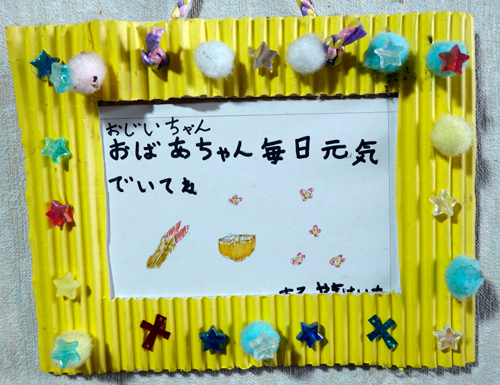 おじいちゃん
おばあちゃん毎日元気
でいてね